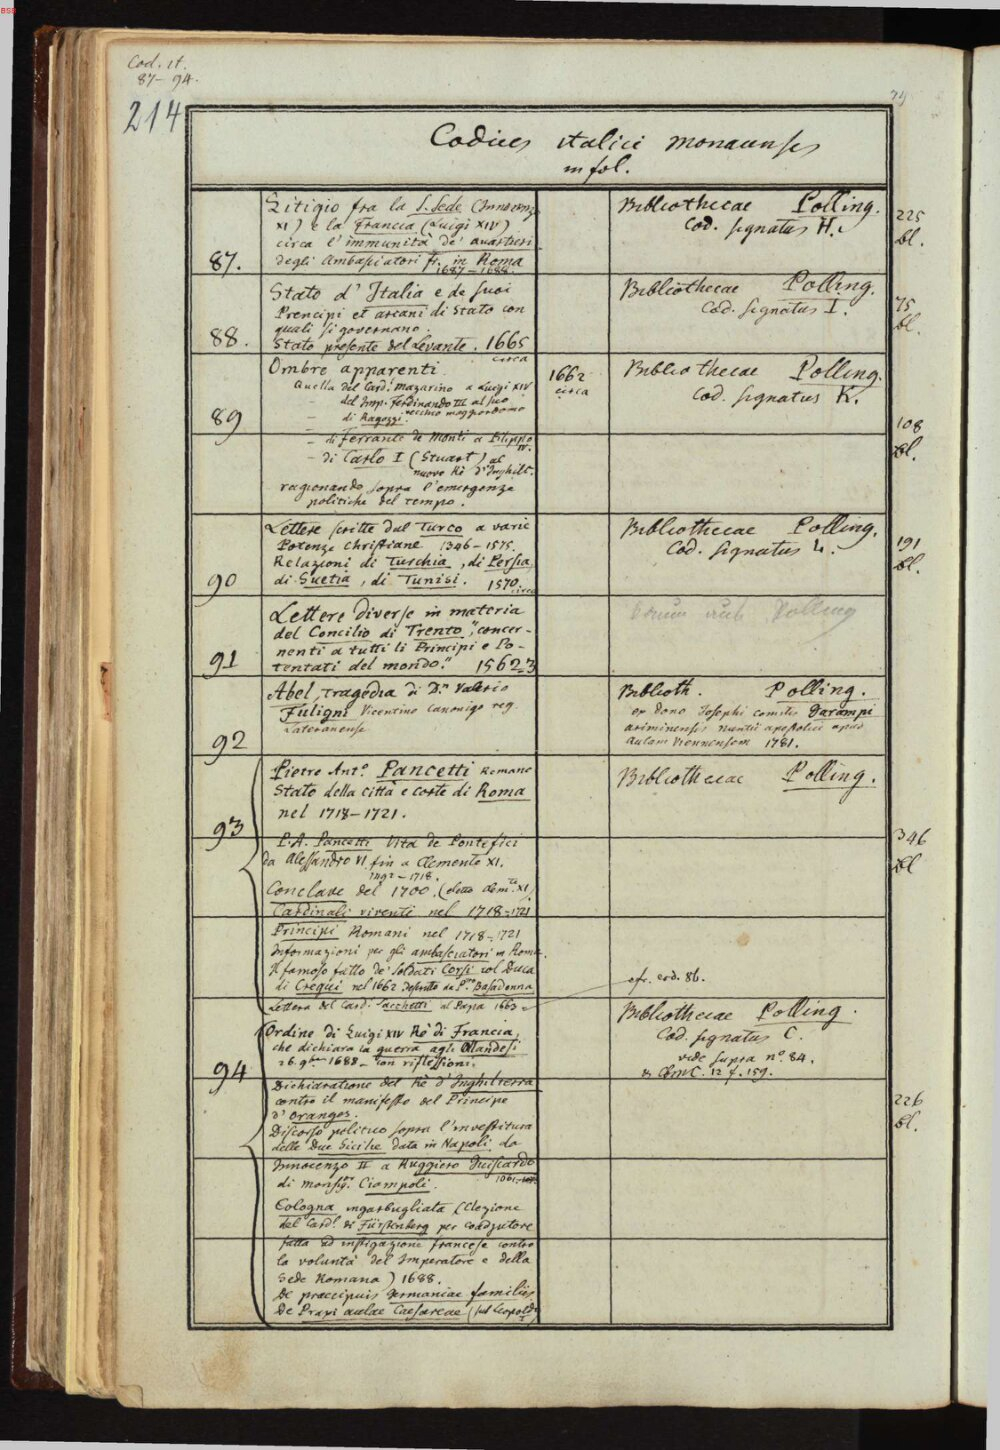 BSB
Cod. it.
87-94.
214
79
Codices italici monacenses
in fol.
87.
Litigio fra la S. Sede (Innocenz
XI) e la Francia (Luigi XIV)
circa l'immunità de' quartieri
degli Ambasciatori fr. in Roma
1687-1688.
Bibliothecae Polling.
Cod. signatus H.
225
bl.
88.
Stato d'Italia e de suoi
Prencipi et arcani di Stato con
quali si governano.
Stato presente del Levante. 1665
circa
Bibliothecae Polling.
Cod. signatus I.
75
bl.
89
Ombre apparenti
Quella del Card. Mazarino a Luigi XIV
- del Imp. Ferdinando III al suo
vecchio maggiordomo
- di Ragozzi.
- di Ferrante de Monti a Filippo
IV.
- di Carlo I (Stuart) al
nuovo Rè d'Inghilt.
ragionando sopra l'emergenze
politiche del tempo.
1662
circa
Bibliothecae Polling.
Cod. signatus K.
108
bl.
90
Lettere scritte dal Turco a varie
Potenze christiane 1346-1575.
Relazioni di Turchia, di Persia,
di Suetia, di Tunisi. 1570
circa
Bibliothecae Polling.
Cod. signatus L.
191
bl.
91
Lettere diverse in materia
del Concilio di Trento, "concer-
nenti a tutti li Principi e Po-
tentati del mondo." 1562-3
Polling
92
Abel, tragedia di D.n Valerio
Fuligni Vicentino Canonigo reg.
Lateranense
Biblioth. Polling.
ex dono Josephi comitis Garampi
ariminensis nuntii apostolici apud
Aulam Viennensem 1781.
93
Pietro Ant.o Pancetti Romano
Stato della città e corte di Roma
nel 1718-1721.
P. A. Pancetti Vita de Pontefici
da Alessandro VI fin a Clemente XI.
1492-1718.
Conclave del 1700. (eletto Clem.te XI)
Cardinali viventi nel 1718-1721
Principi Romani nel 1718-1721
Informazioni per gli ambasciatori in Roma.
Il famoso fatto de' Soldati Corsi col Duca
di Crequi nel 1662 descritto da P.tro Basadonna
Lettera del Card. Sacchetti al Papa 1663
Bibliothecae Polling.
cfr. cod. 86.
346
bl
94
Ordine di Luigi XIV Rè di Francia,
che dichiara la guerra agli Ollandesi
26. 9bre 1688. con riflessioni.
Dichiaratione del Rè d'Inghilterra
contro il manifesto del Principe
d'Oranges.
Discorso politico sopra l'investitura
delle Due Sicilie data in Napoli da
Innocenzo II a Ruggiero Guiscardo
di monsig.r Ciampoli.
Cologna ingarbugliata (Elezione
del Card.l di Fürstenberg per coadjutore
fatta ad instigazione francese contro
la voluntà del Imperatore e della
Sede Romana) 1688.
De praecipuis Germaniae familiis
De Praxi aulae Caesareae (sub Leopoldo
I)
Bibliothecae Polling.
Cod. signatus C.
vide supra n.o 84.
& CbmC. 12 f. 159.
226
bl.